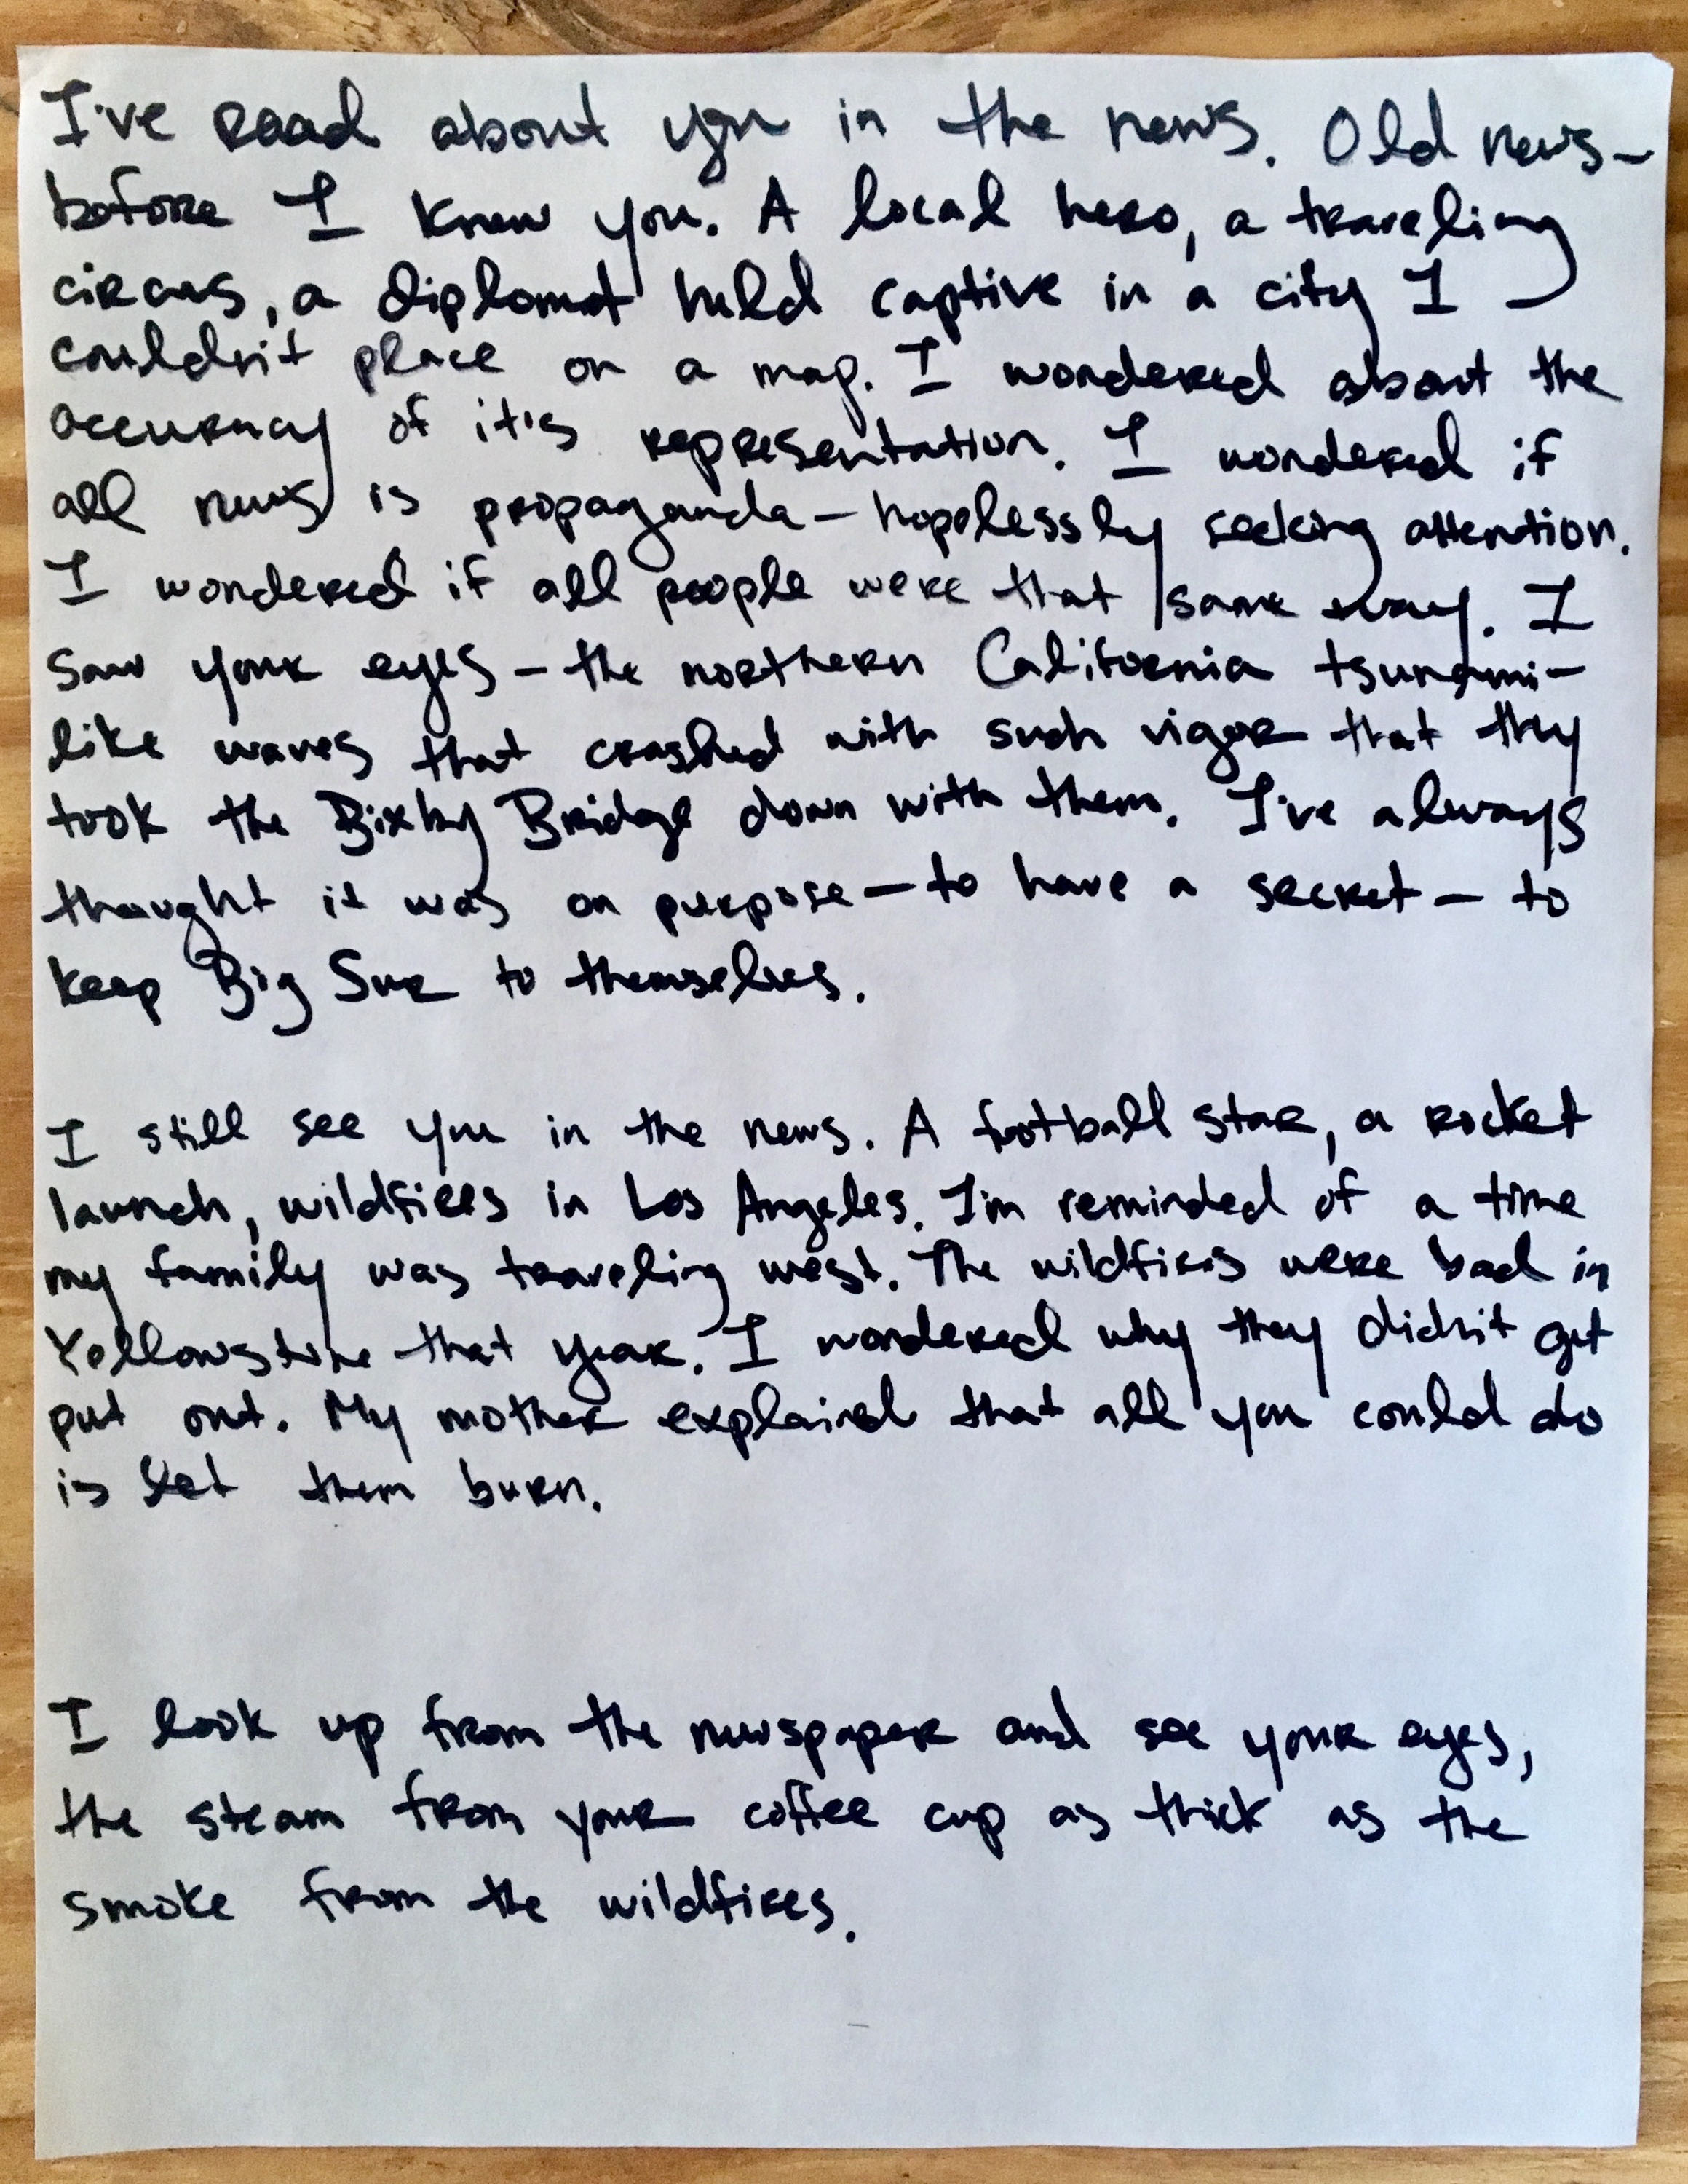 I've read about you in the news. Old news—
before I knew you. A local hero, a traveling
circus, a diplomat held captive in a city I
couldn't place on a map. I wondered about the
accuracy of it's representation. I wondered if
all news is propaganda — hopelessly seeking attention.
I wondered if all people were that same way. I
saw your eyes — the northern California tsunami-
like waves that crashed with such vigor that they
took the Bixby Bridge down with them. I've always
thought it was on purpose — to have a secret — to
keep Big Sur to themselves.
I still see you in the news. A football star, a rocket
launch, wildfires in Los Angeles. I'm reminded of a time
my family was traveling west. The wildfires were bad in
Yellowstone that year. I wondered why they didn't get
put out. My mother explained that all you could do
is let them burn.
I look up from the newspaper and see your eyes,
the steam from your coffee cup as thick as the
smoke from the wildfires.